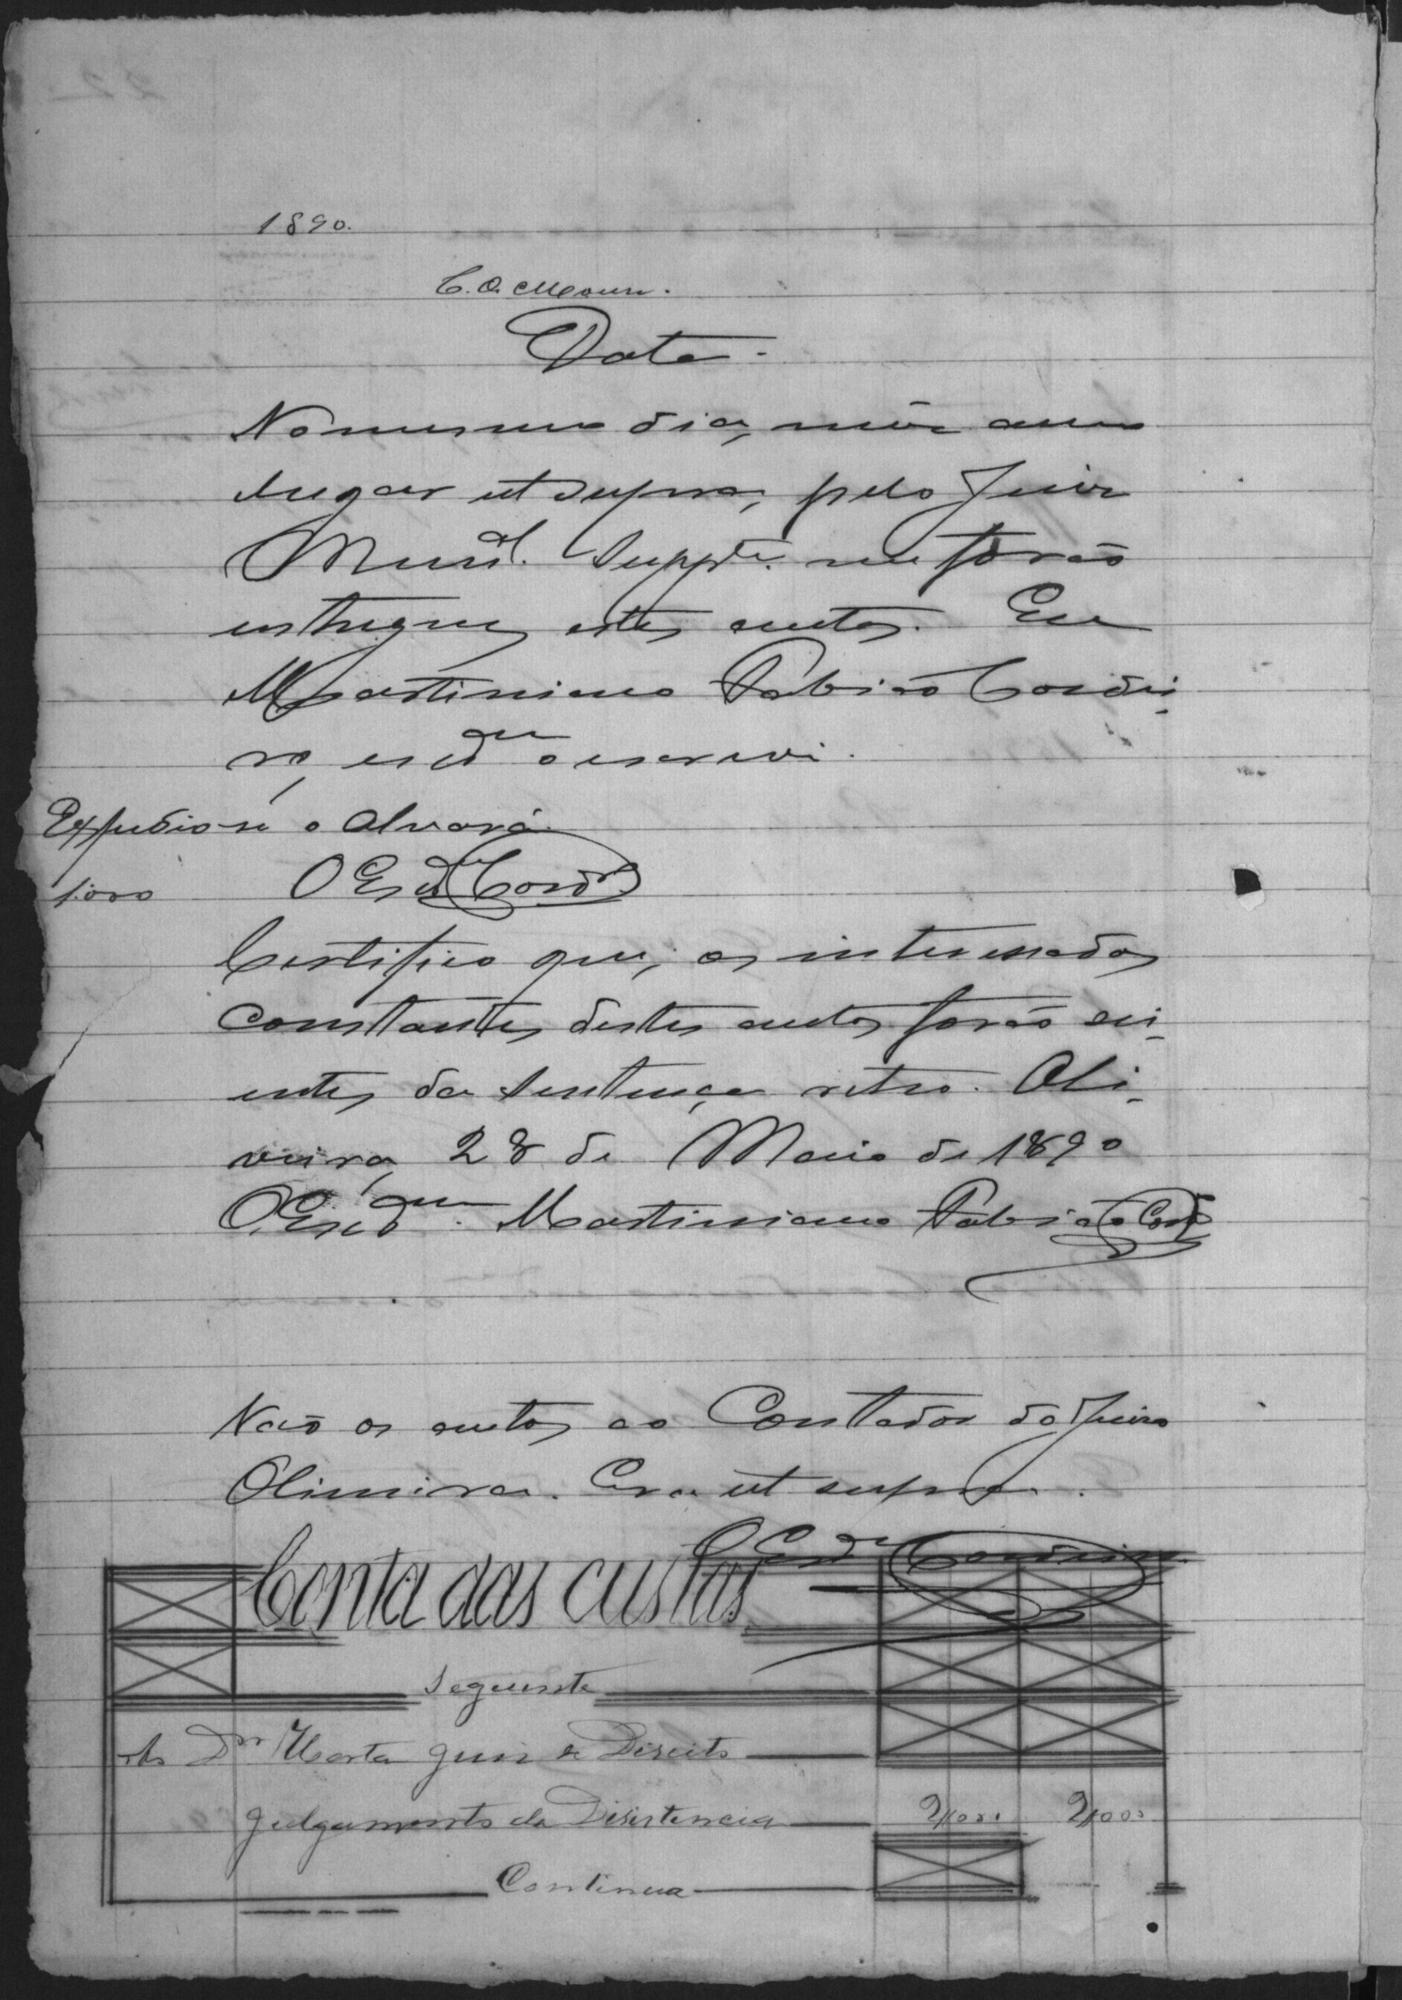 1890.
C. O. Moura.
Data.
No mesmo dia, mês anno
lugar ut supra, pelo Juiz
Munal. Suppte. me forão
entregues estes autos. Eu
Martiniano Fabião Cordei-
ro, escam o escrevi.
Expedio-se o Alvará
O Escam Cordro
Certifico que, os interessados
constantes destes autos forão sci-
entes da sentença retro. Oli-
veira, 28 de Maio de 1890
O Escam. Martiniano Fabião Cordo
Vão os autos ao Contador do Juizo
Oliveira. Era ut supra.
O Escam Cordeiro
Conta das custas
Seguinte
Ao Dr Horta Juiz de Direito
Julgamento da Disistencia 2/000 2/000
Continua